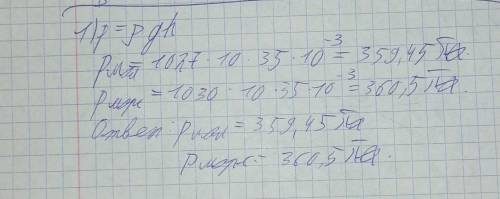 1) p = ρgh
Pмл = 1027 · 10 · 35 · 10⁻³ = 359,45 Па.
Pмж = 1030 · 10 · 35 · 10⁻³ = 360,5 Па.
Ответ: = 359,45 Па
= 360,5 Па.